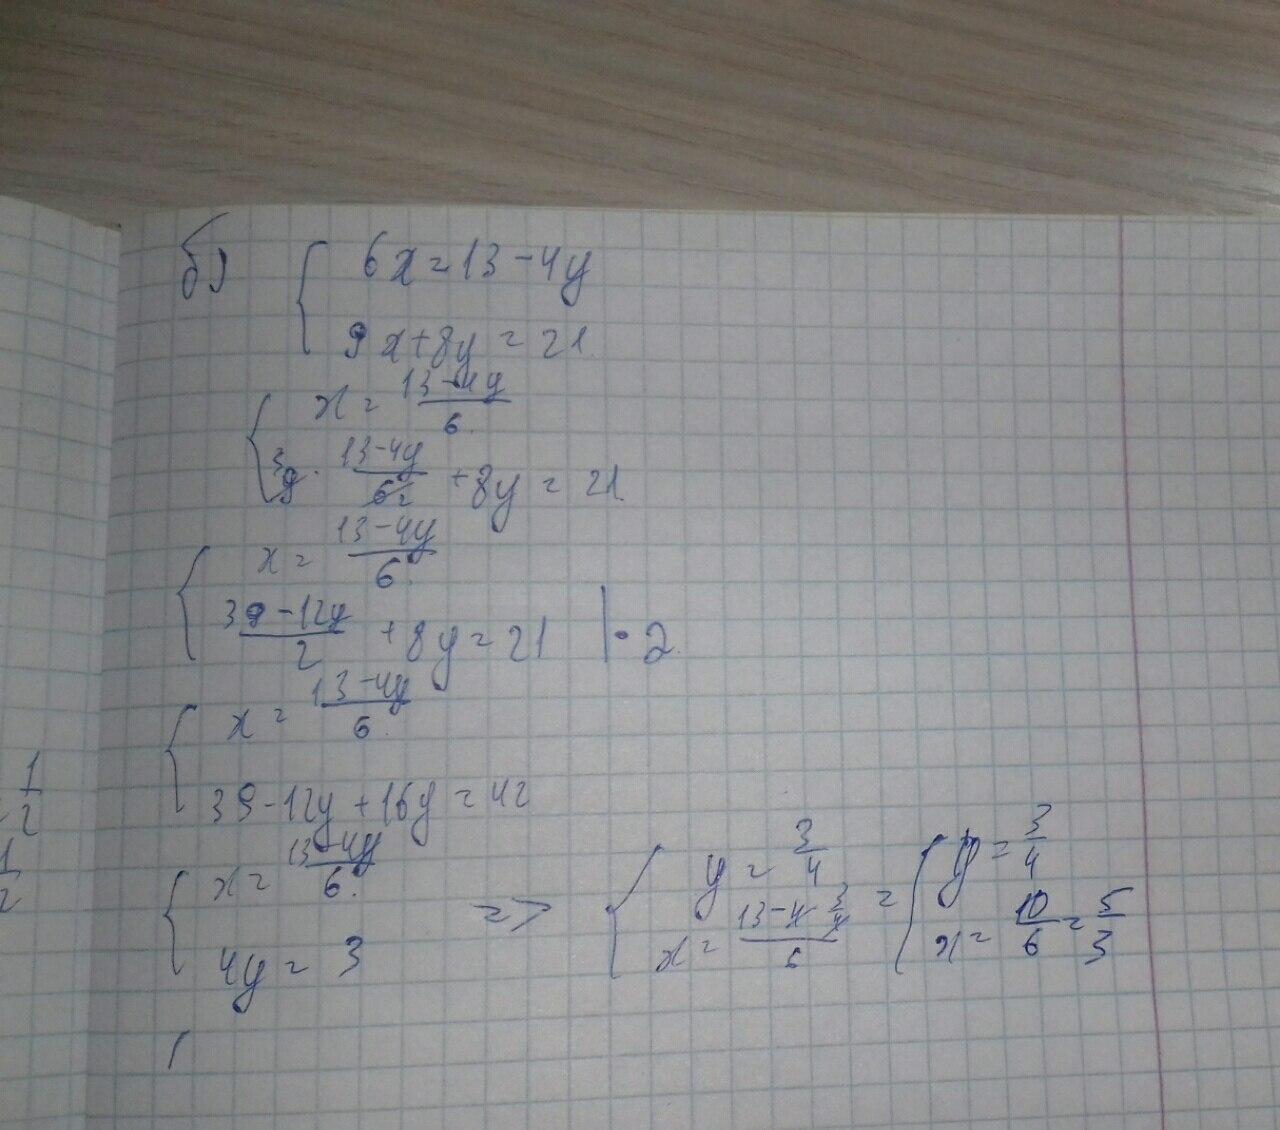 б) { 6x = 13 - 4y
9x + 8y = 21
{ x = (13 - 4y)/6
9 · (13 - 4y)/6 + 8y = 21
3 2
{ x = (13 - 4y)/6
(39 - 12y)/2 + 8y = 21 | · 2
{ x = (13 - 4y)/6
39 - 12y + 16y = 42
{ x = (13 - 4y)/6
4y = 3
=> { y = 3/4
x = (13 - 4 · 3/4)/6
= { y = 3/4
x = 10/6 = 5/3
1/2
1/2